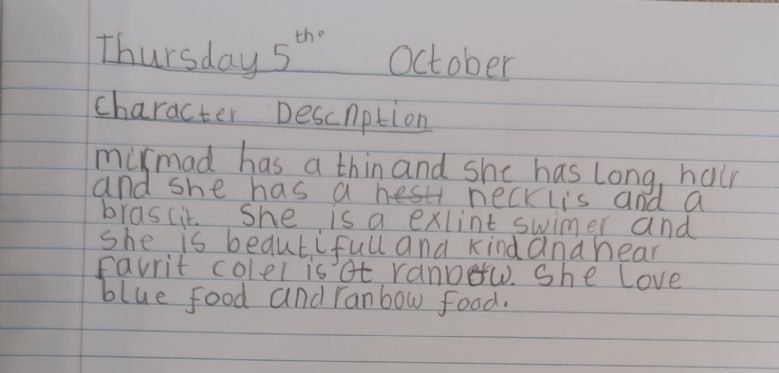 Thursday 5the October
Character Description
mirmad has a thin and she has Long hair
and she has a necklis and a
brasclit. She is a exlint swimer and
she is beautifull and kind and hear
favrit coler is ranbow. She Love
blue food and ranbow food.